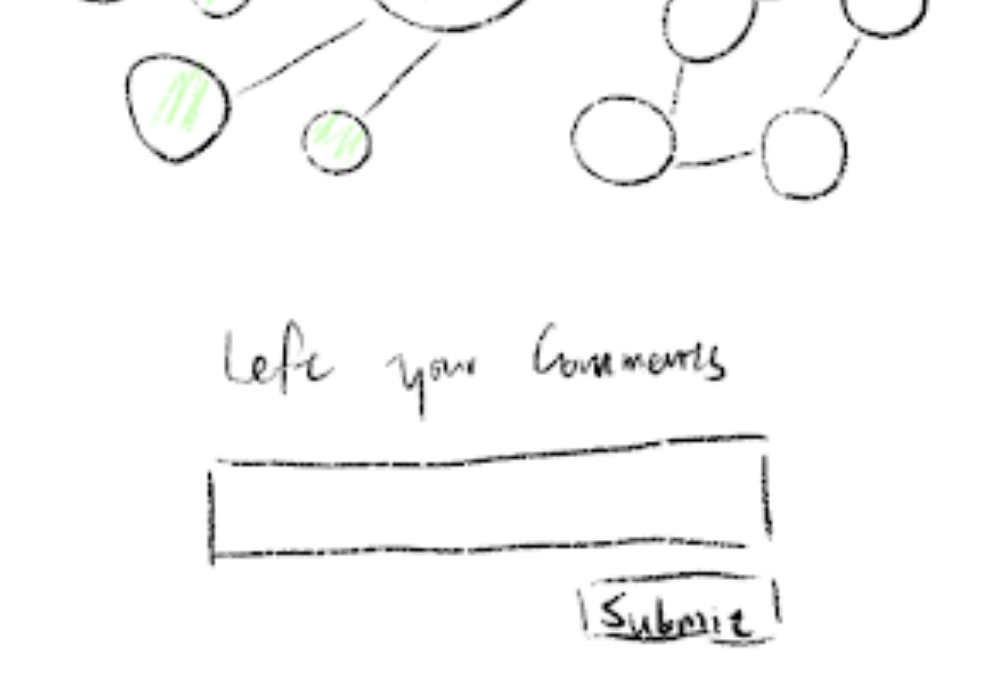 Left your Comments
Submit